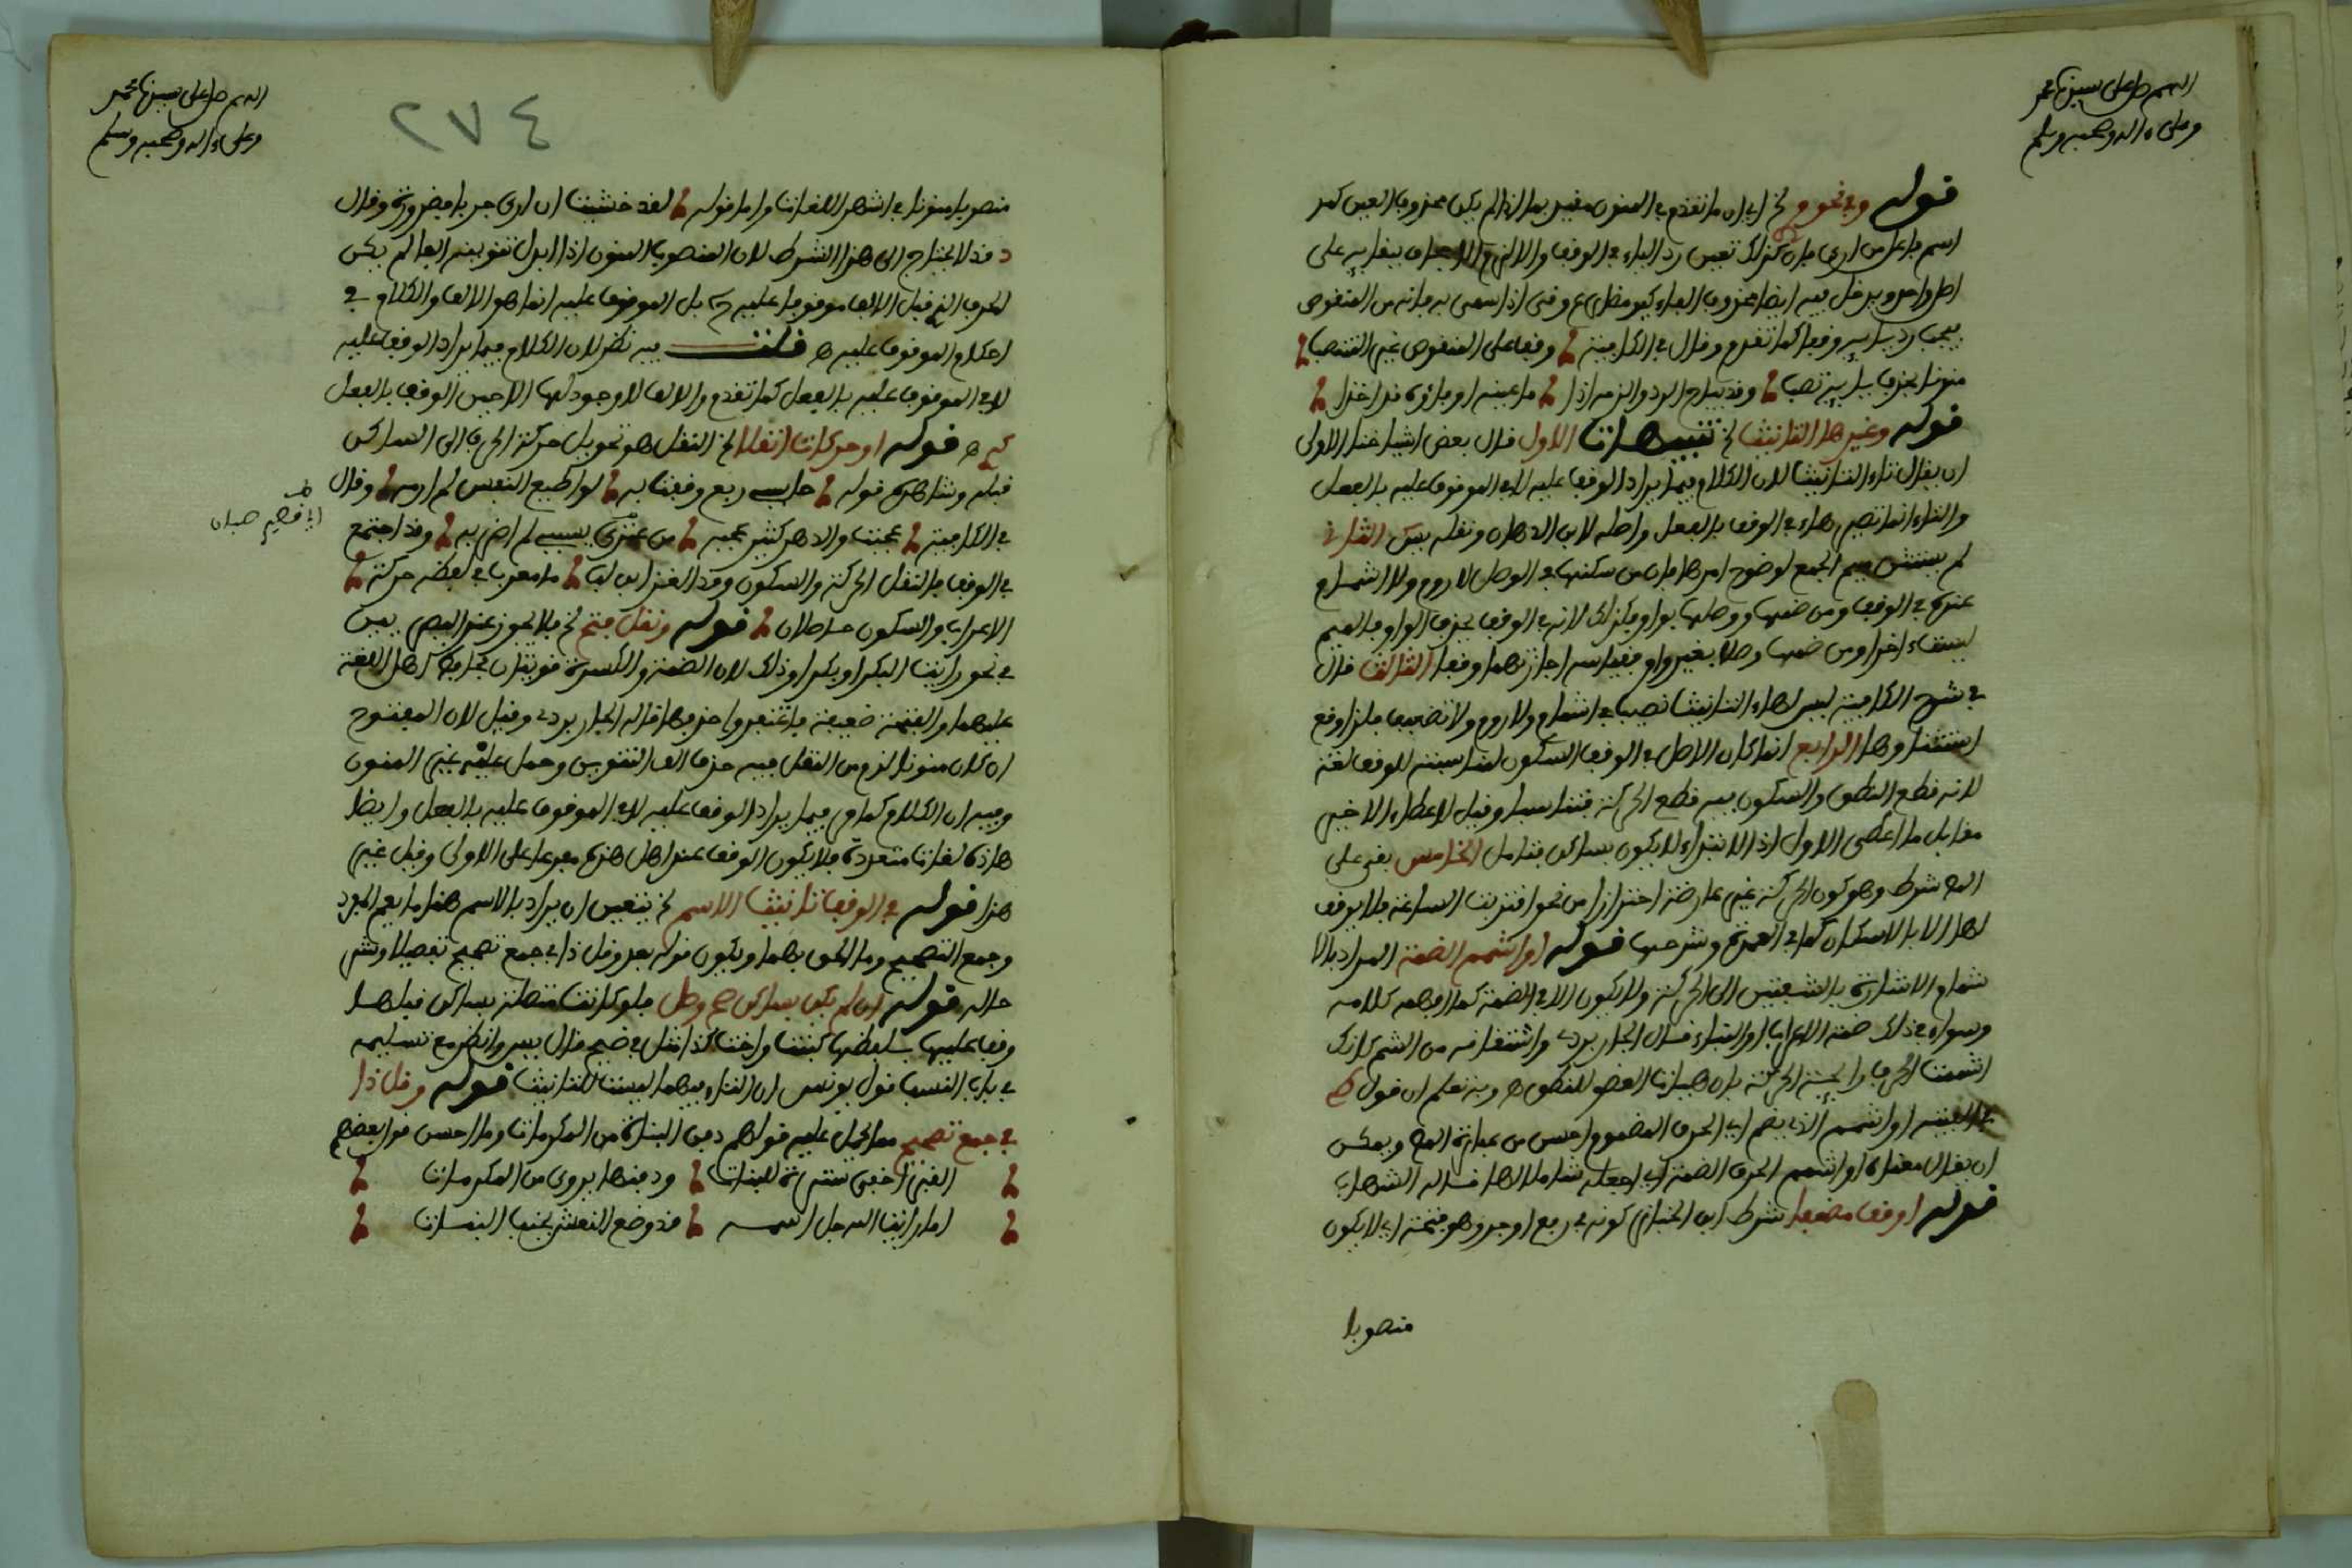 اللهم صل على سيدنا محمد
وعلى ءاله وصحبه وسلم
قوله وفي نحو مر الخ اي ان ما تقدم في المنون مقيد بما اذا لم يكن محذوف العين كمر
اسم فاعل من ارى فان كان كذلك تعين رد الياء في الوقف والا لزم الاجحاف ببقائه على
اصل واحد ويدخل فيه ايضا محذوف الفاء كيف مضارع وفى اذا سمي به فانه من المنقوص
يجب رد يائه وقفا كما تقدم وقال في الكافية وقفا على المنقوص غير المنتصب
منونا بحذف ياء تصب وقد يباح الرد والزمه اذا ما عينه او فاؤه قد اخذا
قوله وغير ها التانيث الخ تنبيهات الاول قال بعض اشياخنا الاولى
ان يقال تاء التانيث لان الكلام فيما يراد الوقف عليه لا في الموقوف عليه بالفعل
والتاء انما تصير هاء في الوقف بالفعل واصله لابن الدهان ونقله يس الثاني
لم يستثن ميم الجمع لوضوح امرها فان من سكنها في الوصل لا روم ولا اشمام
عنده في الوقف ومن ضمها ووصلها بواو فكذلك لانه في الوقف بحذف الواو فالميم
وصلا بغير واو فقياسه اجازتهما وقفا الثالث قال
في شرح الكافية ليس لهاء التانيث نصيب في اشمام ولا روم ولا تضعيف فلذا وقع
استثناوها الرابع انما كان الاصل في الوقف السكون لمناسبته للوقف لغة
لانه قطع النطق والسكون فيه قطع الحركة فتناسبا وقيل لاعطاء الاخير
مقابل ما اعطي الاول اذ الابتداء لا يكون بساكن فتامل الخامس بقي على
المص شرط وهو كون الحركة غير عارضة احترازا من نحو اقتربت الساعة فلا يوقف
لها الا بالاسكان كما في العمدة وشرحها قوله او اشمم الضمة المراد بالا
شمام الاشارة بالشفتين الى الحركة ولا يكون الا في الضمة كما افهمه كلامه
وسواء في ذلك ضمة الاعراب او البناء قال الجاربردي واشتقاقه من الشم كانك
اشممت الحرف رائحة الحركة بان هيات العضو للنطق اه وبه تعلم ان قول
في الفيته او اشمم الذي يضم اي الحرف المضموم احسن من عبارة المص ويمكن
ان يقال معناه او اشمم الحرف الضمة اي اجعله شاما لها قاله الشهاب
قوله او قف مضعفا شرط ابن الخباز كونه في رفع او جر وهو متجه اي لا يكون
منصوبا
اللهم صل على سيدنا محمد
وعلى ءاله وصحبه وسلم
٢٧٤
منصوبا منونا في اشهر اللغات واما قوله لقد خشيت ان ارى جدبا فضرورة وقال
د قد لا يحتاج الى هذا الشرط لان المنصوب المنون اذا ابدل تنوينه الفا لم يكن
الحرف الذي قبل الالف موقوفا عليه ح بل الموقوف عليه انما هو الالف والكلام في
احكام الموقوف عليه اه قلت فيه نظر لان الكلام فيما يراد الوقف عليه
لا في الموقوف عليه بالفعل كما تقدم والالف لا وجود لها الا حين الوقف بالفعل
اه قوله او حركات انقلا الخ النقل هو تحويل حركة الحرف الى الساكن
قبله وشاهده قوله ربع وقفت به لواطيع النفس لم ارمه وقال
اي قصير صبان
في الكافية عجبت والدهر كثير عجبه من عنزي سبني لم اضربه وقد اجتمع
في الوقف بالنقل الحركة والسكون وقد الغز ابن لب ما معرب في لفظه حركة
الاعراب والسكون حاصلان قوله ونقل فتح الخ فلا يجوز عند البصريين
في نحو رايت البكر او بكرا وذلك لان الضمة والكسرة قويتان
عليهما والفتحة ضعيفة فاغتفروا حذفها قاله الجاربردي وقيل لان المفتوح
ان كان منونا لزم من النقل فيه حذف الف التنوين وحمل عليه غير المنون
وفيه ان الكلام كما مر فيما يراد الوقف عليه لا في الموقوف عليه بالفعل وايضا
هاذه لغات متعددة فلا يكون الوقف عند اهل هذه مفرعا على الاولى وقيل غير
هذا قوله في الوقف تا تانيث الاسم الخ يتعين ان يراد بالاسم هنا ما يعم المفرد
وجمع التصحيح وما الحق بهما ويكون قوله بعد وقل ذا في جمع تصحيح تفصيلا وشر
حا له قوله ان لم يكن بساكن صح وصل فلو كانت متصلة بساكن قبلها
وقف عليها بلفظها كبنت واخت كذا نقل في ضيح قال يس وانظر مع تسليمه
في باب النسب قول يونس ان التاء فيهما ليست للتانيث قوله وقل ذا
في جمع تصحيح مما يحمل عليه قولهم دفن البناه من المكرماه وما احسن قول بعضهم
القبر اخفى سترة للبنات ودفنها يروى من المكرمات
اما رايت الله جل اسمه قد وضع النعش بجنب البنات